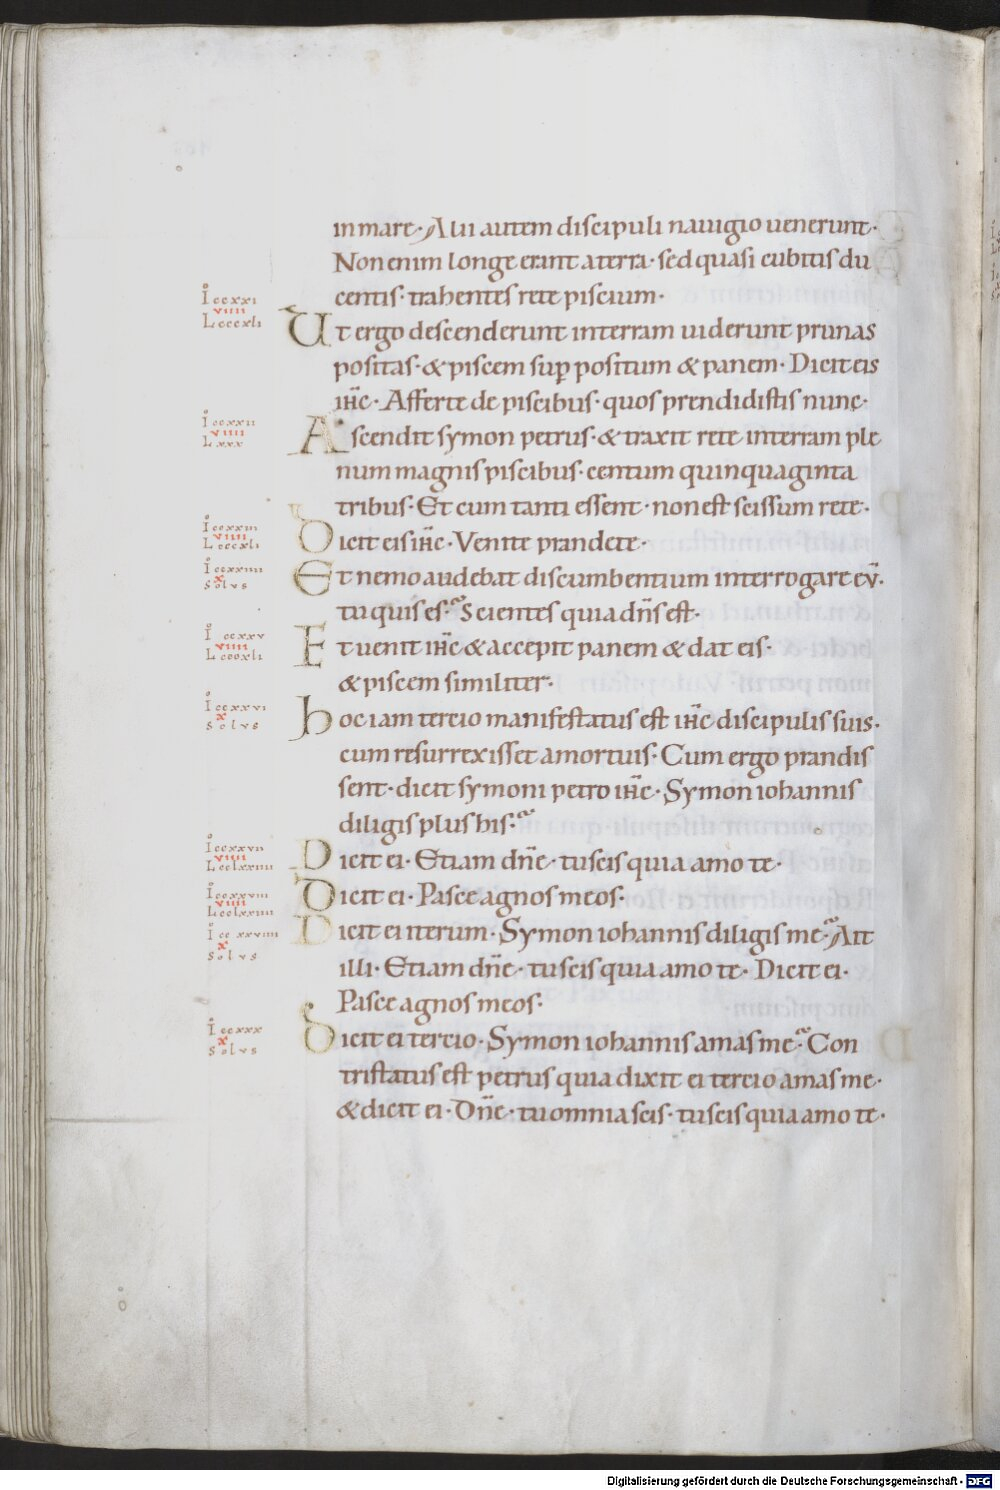 in mare · Alii autem discipuli nauigio uenerunt ·
Non enim longe erant a terra · sed quasi cubitis du
centis · trahentes rete piscium ·
I ccxxi
viiii
L ccccxli
Ut ergo descenderunt in terram uiderunt prunas
positas · & piscem sup̄positum & panem · Dicit eis
ih̄c · Afferte de piscibus · quos prendidistis nunc ·
I ccxxii
viiii
L xxx
Ascendit symon petrus · & traxit rete in terram ple
num magnis piscibus · centum quinquaginta
tribus · Et cum tanti essent · non est scissum rete ·
I ccxxiii
viiii
L ccccxli
Dicit eis ih̄c · Venite prandete ·
I ccxxiiii
x
Solus
Et nemo audebat discumbentium interrogare eū ·
tu quis es · Scientes quia dn̄s est ·
I ccxxv
viiii
L ccccxli
Et uenit ih̄c & accepit panem & dat eis ·
& piscem similiter ·
I ccxxvi
x
Solus
Hoc iam tercio manifestatus est ih̄c discipulis suis ·
cum resurrexisset a mortuis · Cum ergo prandis
sent · dicit symoni petro ih̄c · Symon iohannis
diligis plus his ·
I ccxxvii
viiii
L cclxxiiii
Dicit ei · Etiam dn̄e · tu scis quia amo te ·
I ccxxviii
viiii
L cclxxiiii
Dicit ei · Pasce agnos meos ·
I ccxxviiii
x
Solus
Dicit ei iterum · Symon iohannis diligis me · Ait
illi · Etiam dn̄e · tu scis quia amo te · Dicit ei ·
Pasce agnos meos ·
I ccxxx
x
Solus
Dicit ei tercio · Symon iohannis amas me · Con
tristatus est petrus quia dixit ei tercio amas me ·
& dicit ei · Dn̄e · tu omnia scis · tu scis quia amo te ·
Digitalisierung gefördert durch die Deutsche Forschungsgemeinschaft - DFG